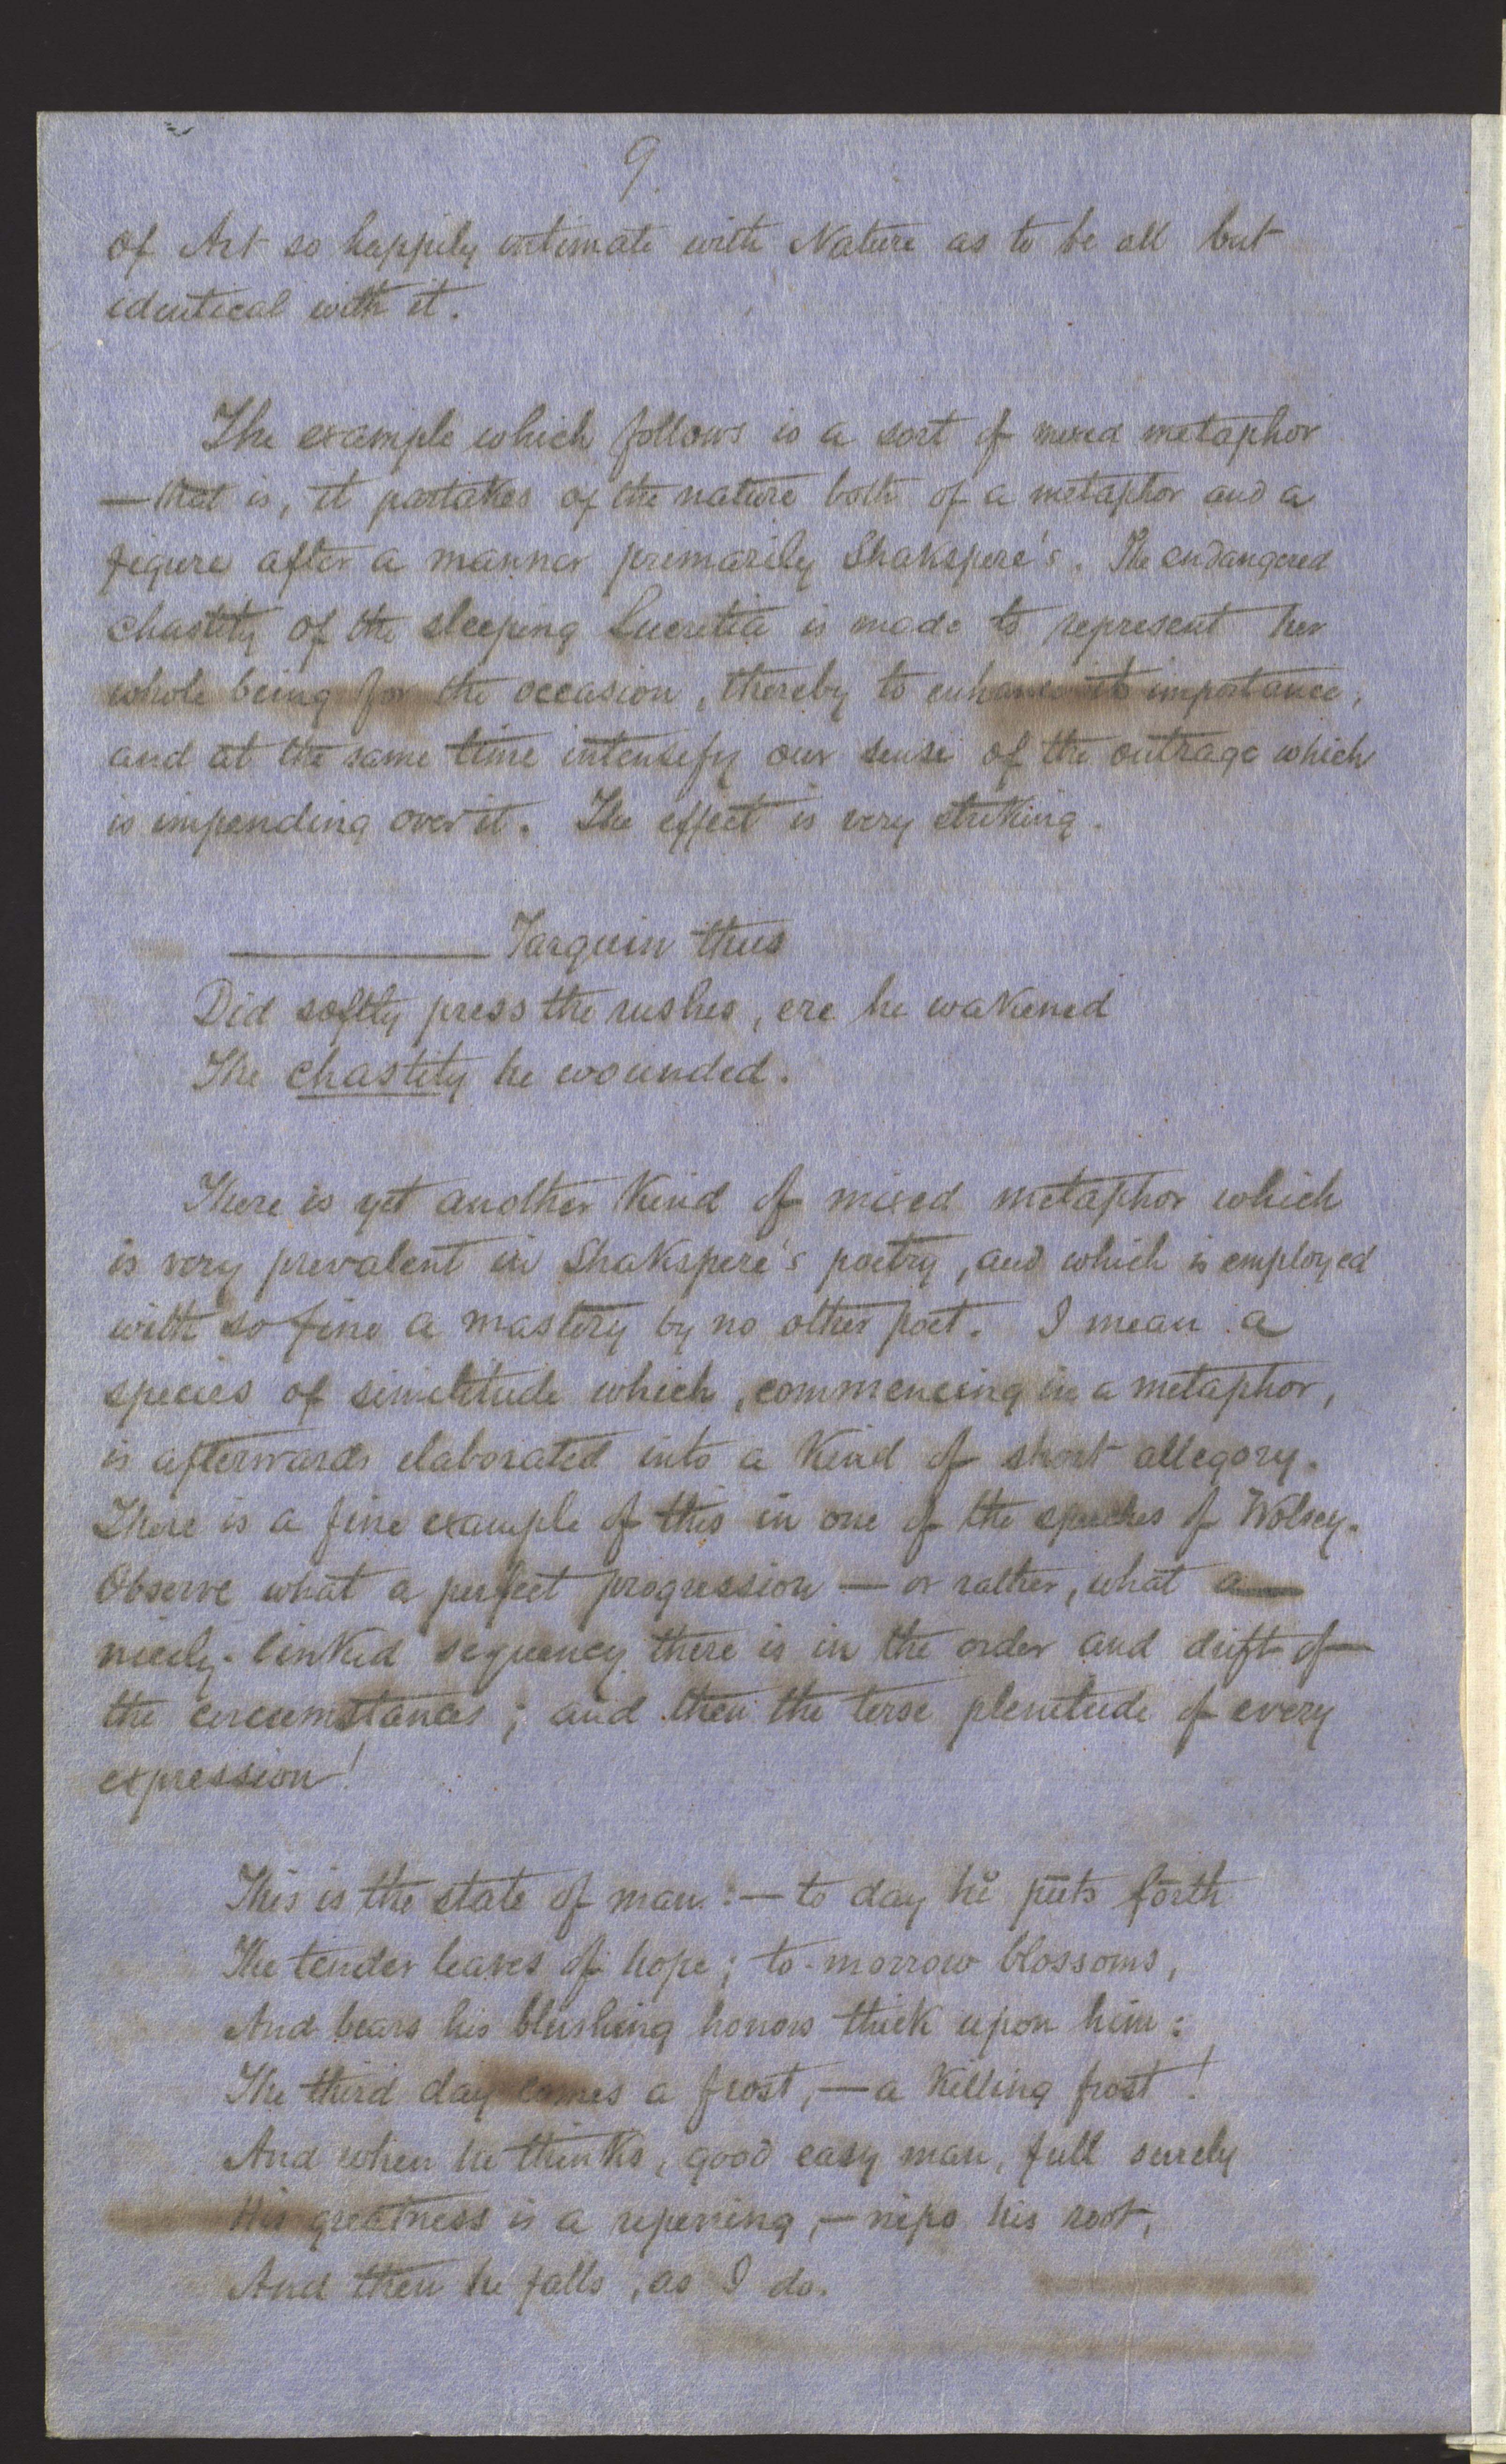 9.
of Art so happily intimate with Nature as to be all but
identical with it.
The example which follows is a sort of mixed metaphor
— that is, it partakes of the nature both of a metaphor and a
figure after a manner primarily Shakspere's. The endangered
chastity of the sleeping Lucretia is made to represent her
whole being for the occasion, thereby to enhance its importance,
and at the same time intensify our sense of the outrage which
is impending over it. The effect is very striking.
——— Tarquin thus
Did softly press the rushes, ere he wakened
The chastity he wounded.
There is yet another kind of mixed metaphor which
is very prevalent in Shakspere's poetry, and which is employed
with so fine a mastery by no other poet. I mean a
species of similitude which, commencing in a metaphor,
is afterwards elaborated into a kind of short allegory.
There is a fine example of this in one of the speeches of Wolsey.
Observe what a perfect progression — or rather, what a
nicely-linked sequency there is in the order and drift of
the circumstances; and then the terse plenitude of every
expression!
This is the state of man:— to day he puts forth
The tender leaves of hope; to-morrow blossoms,
And bears his blushing honors thick upon him:
The third day comes a frost,— a killing frost!
And when he thinks, good easy man, full surely
His greatness is a ripening,— nips his root,
And then he falls, as I do.